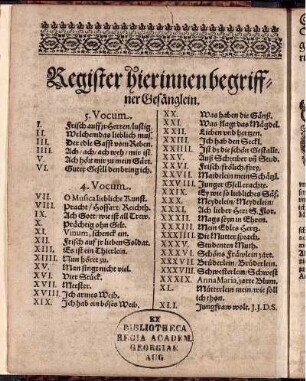 Register hierinnen begriff-
ner Gesänglein.
5. Vocum.
I. Frisch auff jr Herren/lustig
II. Welchem das lieblich mus.
III. Der edle Safft vom Reben.
IIII. Ach/ach/ach weh/mir ist.
V. Ach hett mir zu mein Gärt.
VI. Guter Gesell den bring ich.
4. Vocum.
VII. O Musica liebliche Kunst.
VIII. Hoffart Reichth.
IX. Ach Gott/wie ist all Trew.
X. Prächtig ohn Gelt.
XI. Vinum, schenck ein.
XII. Frisch auff jr lieben Soldat.
XIII. Es ist ein Thierlein.
XIIII. Nun höret zu.
XV. Man singt nicht viel.
XVI. Vier Stück.
XVII. Meister.
XVIII. Ich armes Weib.
XIX. Ich hab ein böses Weib.
XX. Was haben die Gänß.
XXI. Was klagt das Mägdel.
XXII. Lieben und hertzen.
XXIII. Ich hab den Sect.
XXIIII. Ist dz die schöne Gestalle.
XXV. Auß Schreiber vñ Stud.
XXVI. Frisch frölich frey.
XXVII. Maidelein mein Schätzl.
XXVIII. Junger Gsell erachte.
XXIX. Ey wie so lieblichs Gäß.
XXX. Meydelein/Meydelein.
XXXI. Ach lieber Herr S. Flor.
XXXII.
XXXIII. Mein Edles Hertz.
XXXIIII. Die Mutter sprach.
XXXV. Studenten Muth.
XXXVI. Schöns Fräwlein zart.
XXXVII. Brüderlein/Brüderlein.
XXXVIII. Schwesterlein/Schwest.
XXXIX. Anna Maria, zarte Blum.
XL. Mütterlein mein wie soll
ich thun.
XLI. Jungfraw wolt. J.J.D.S.
EX
BIBLIOTHECA
REGIA ACADEM.
GEORGIAE
AUG